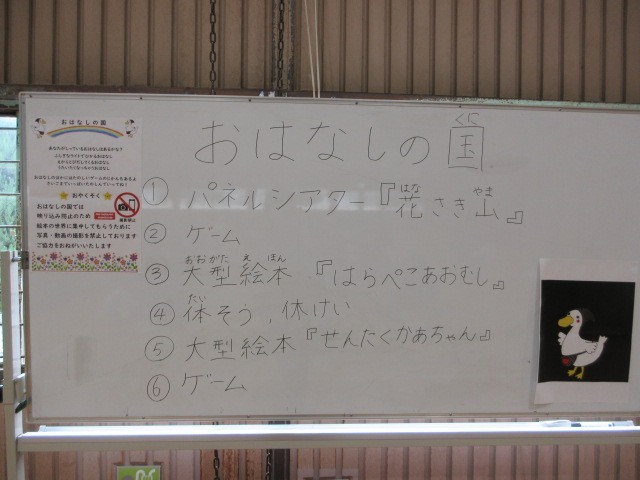 おはなしの国
おやくそく
おはなしの国では
映り込み防止のため
絵本の世界に集中してもらうために
写真・動画の撮影を禁止しております
ご協力をおねがいいたします
おはなしの国
くに
① パネルシアター『花さき山』
はな やま
② ゲーム
③ 大型絵本 『はらぺこあおむし』
おおがた え ほん
④ 体そう、休けい
たい
⑤ 大型絵本『せんたくかあちゃん』
⑥ ゲーム